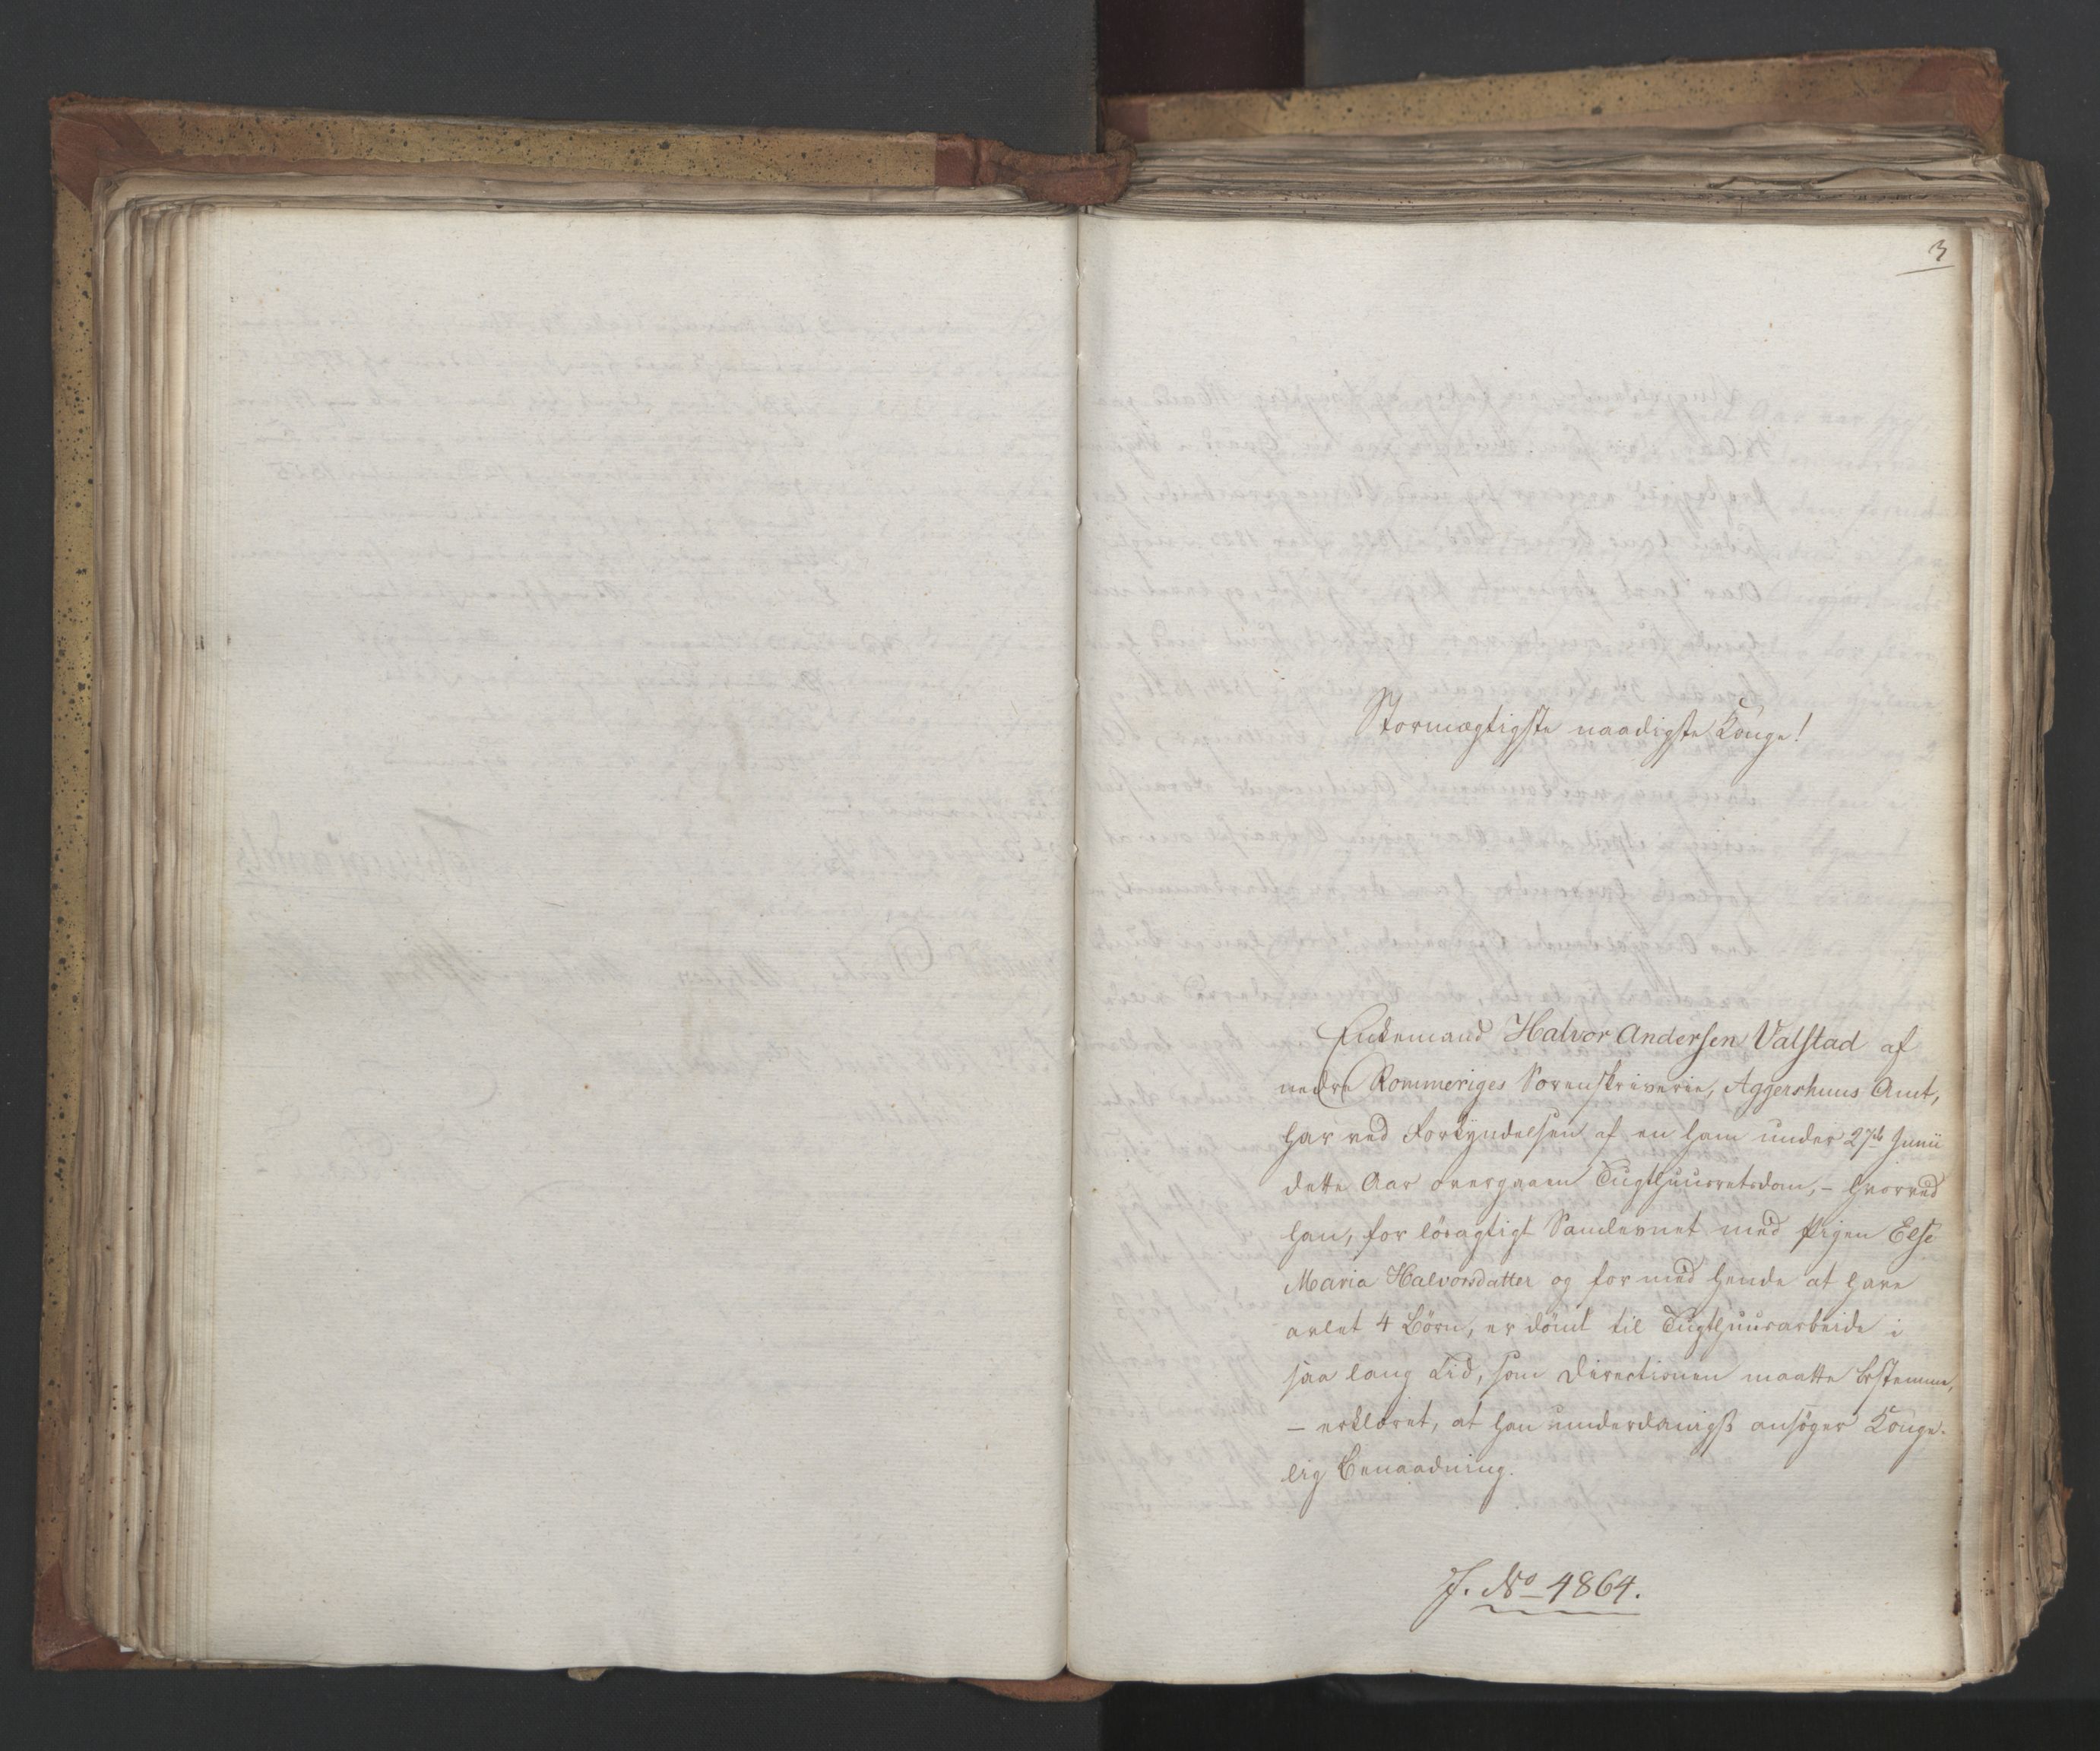 3
Stormægtigste naadigste Konge!
Enkemand Halvor Andersen Valstad af
nedre Rommeriges Sorenskriverie, Aggershuus Amt,
har ved Forkyndelsen af en ham under 27de Junii
dette Aar overgaaen Tugthuusretsdom, - hvorved
han, for løsagtigt Samlevnet med Pigen Else
Maria Halvorsdatter og for med hende at have
avlet 4 Børn, er dømt til Tugthuusarbeide i
saa lang Tid, som Directionen maatte bestemme,
- erklæret, at han underdanigst ansøger Konge-
lig Benaadning.
J. No 4864.